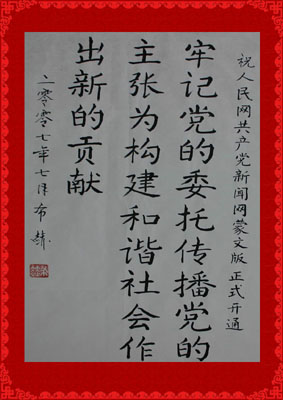 祝人民网共产党新闻网蒙文版正式开通
牢记党的委托传播党的
主张为构建和谐社会作
出新的贡献
二零零七年七月布赫